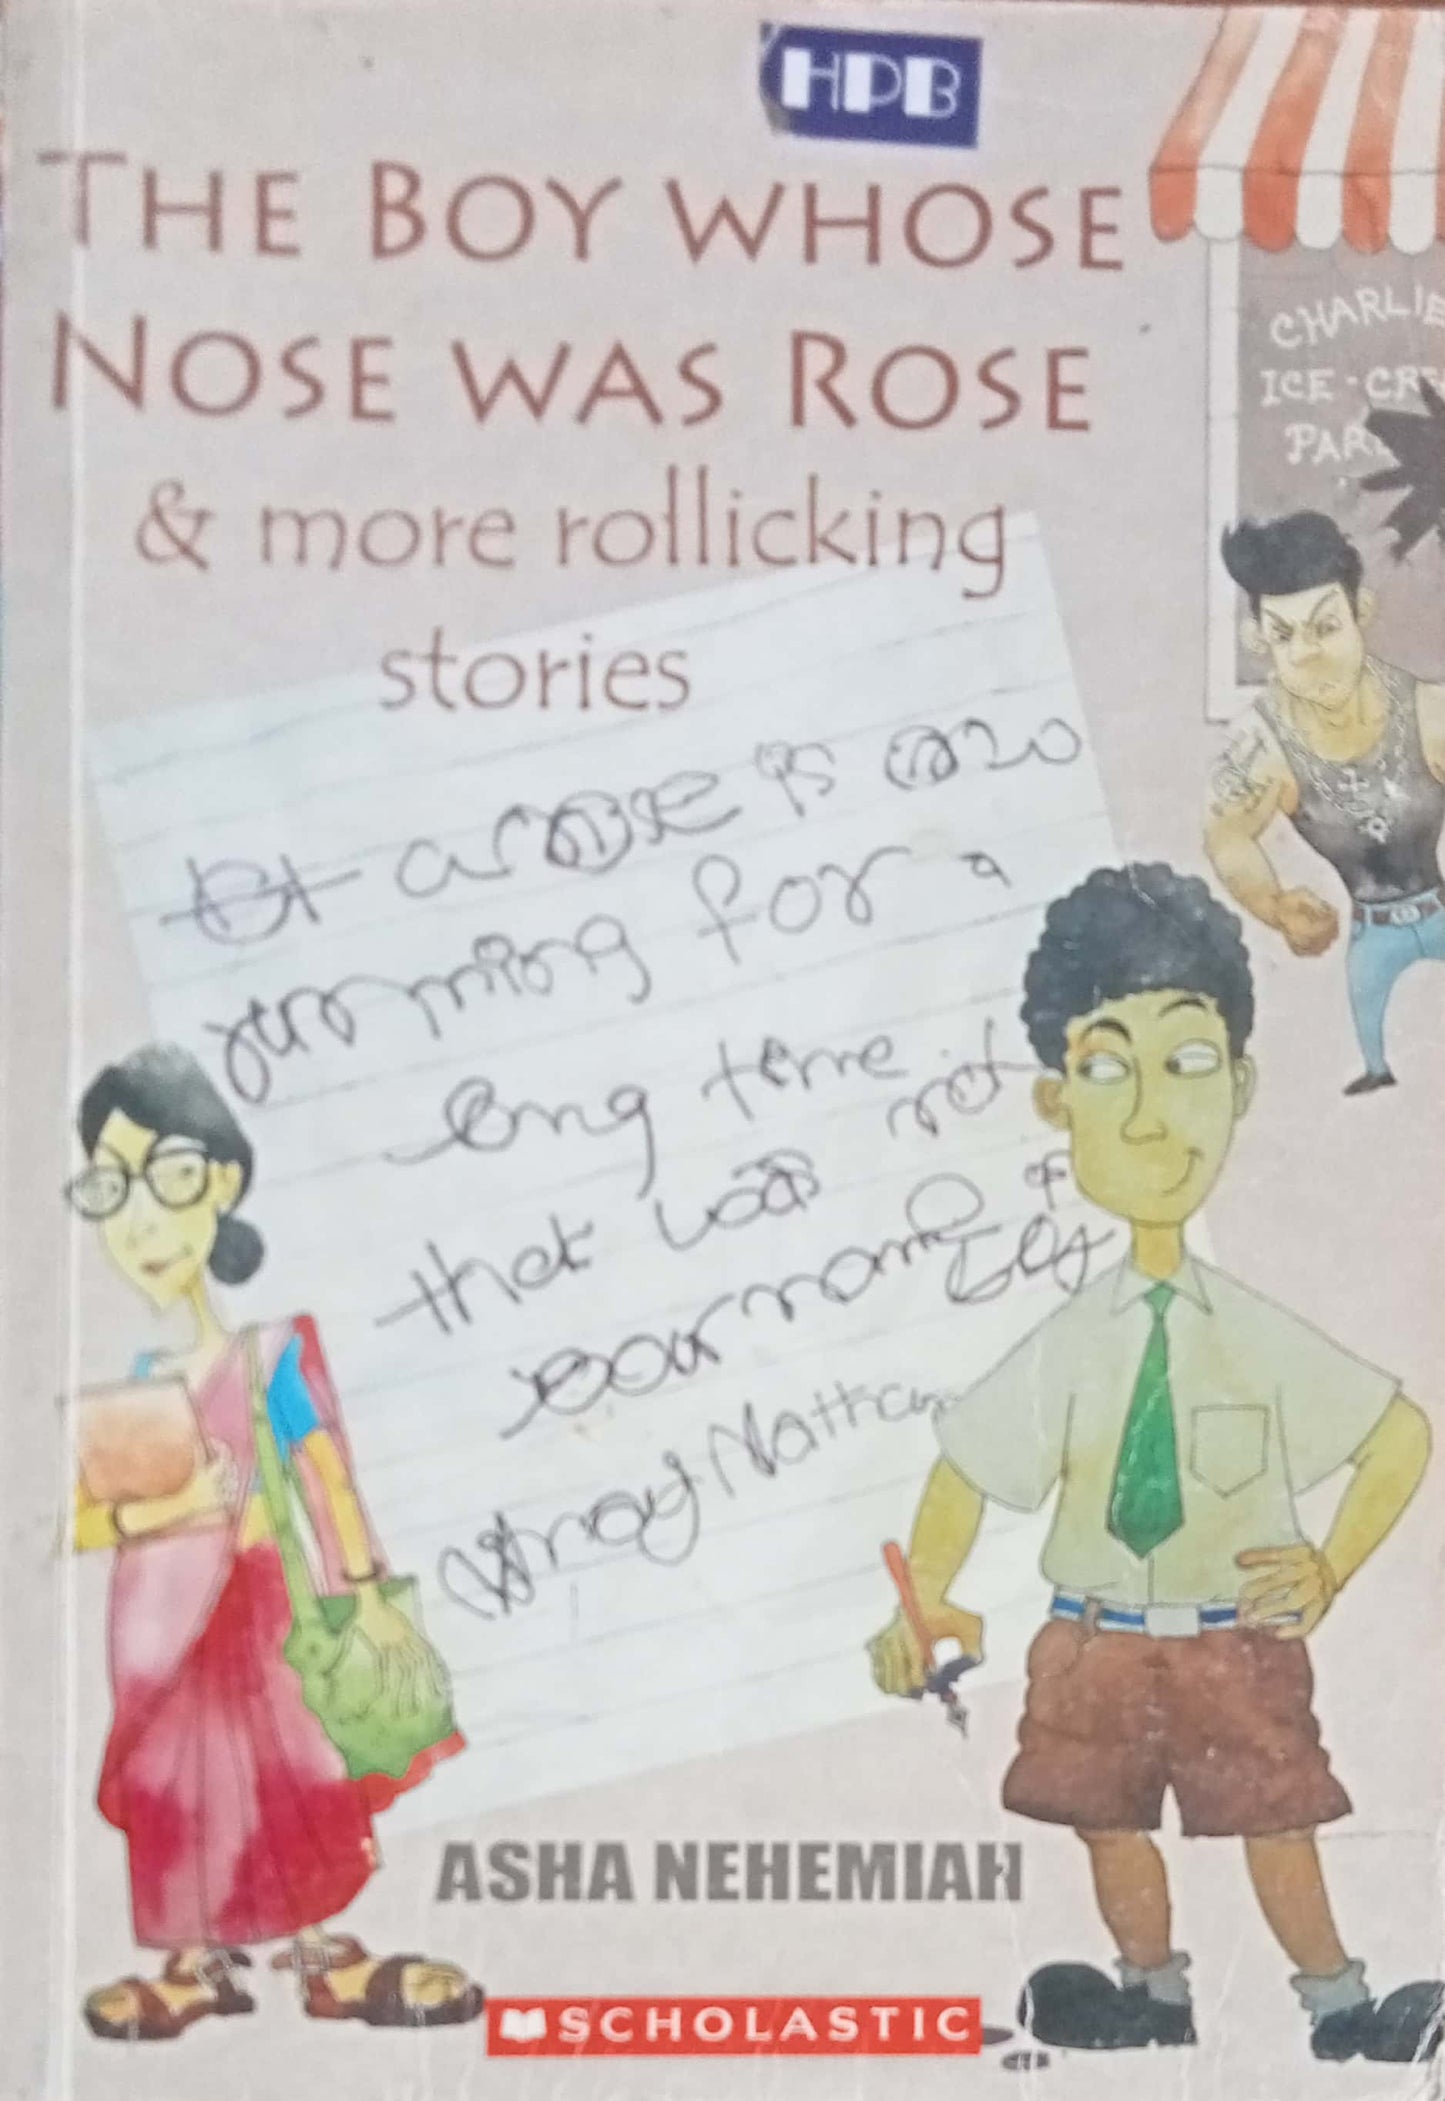 HPB
THE BOY WHOSE
NOSE WAS ROSE
& more rollicking
stories
CHARLIE
ICE-CRE
PAR
a nose is
running for a
ong time
that was not
Nathan
ASHA NEHEMIAH
SCHOLASTIC